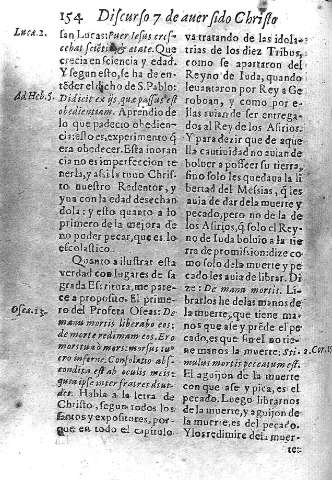 154 Discurso 7 de auer sido Christo
Luca. 2.
san Lucas: Puer Iesus cres-
cebat scientia, & ætate. Que
crecia en sciencia y edad.
Y segun esto, se ha de en-
tẽder el dicho de S. Pablo:
Ad Heb. 5.
Didicit ex ijs, quæ passus est
obedientiam. Aprendio de
lo que padecio obedien-
cia: esto es, experimento q̃
era obedecer. Esta inoran
cia no es imperfeccion te
nerla, y assi la tuuo Chris-
to nuestro Redentor, y
yua con la edad desechan
dola: y esto quanto a lo
primero de la mejora de
no poder pecar, que es lo
escolastico.
Quanto a ilustrar esta
verdad con lugares de sa-
grada Escritura, me pare-
ce a proposito. El prime-
ro del Profeta Oseas: De
Osea. 13.
manu mortis liberabo eos:
de morte redimam eos. Ero
mors tua ò mors: morsus tuus
ero inferne. Consolatio abs-
condita est ab oculis meis:
quia ipse inter fratres diui-
det. Habla a la letra de
Christo, segun todos los
santos y expositores, por-
que en todo el capitulo
va tratando de las idola-
trias de los diez Tribus,
como se apartaron del
Reyno de Iuda, quando
leuantaron por Rey a Ge
roboan, y como por e-
llas auian de ser entrega-
dos al Rey de los Asirios.
Y para dezir que de aque
lla cautiuidad no auian de
boluer a posseer su tierra,
sino solo les quedaua la li
bertad del Messias, q̃ les
auia de dar de la muerte y
pecado, pero no de la de
los Asirios, q̃ solo el Rey-
no de Iuda boluio a la tie
rra de promission: dize co
mo solo de la muerte y pe
cado les auia de librar. Di
ze: De manu mortis. Li-
brarlos he de las manos de
la muerte, que tiene ma-
nos que ale y prẽde el pe-
cado, es que sin el no tie-
ne manos la muerte: Sti-
2. Cor. 15
mulus mortis peccatum est.
El aguijon de la muerte
con que ase y pica, es el
pecado. Luego librarnos
de la muerte, y aguijon de
la muerte, es del pecado.
Y los redimire de la muer-
te: